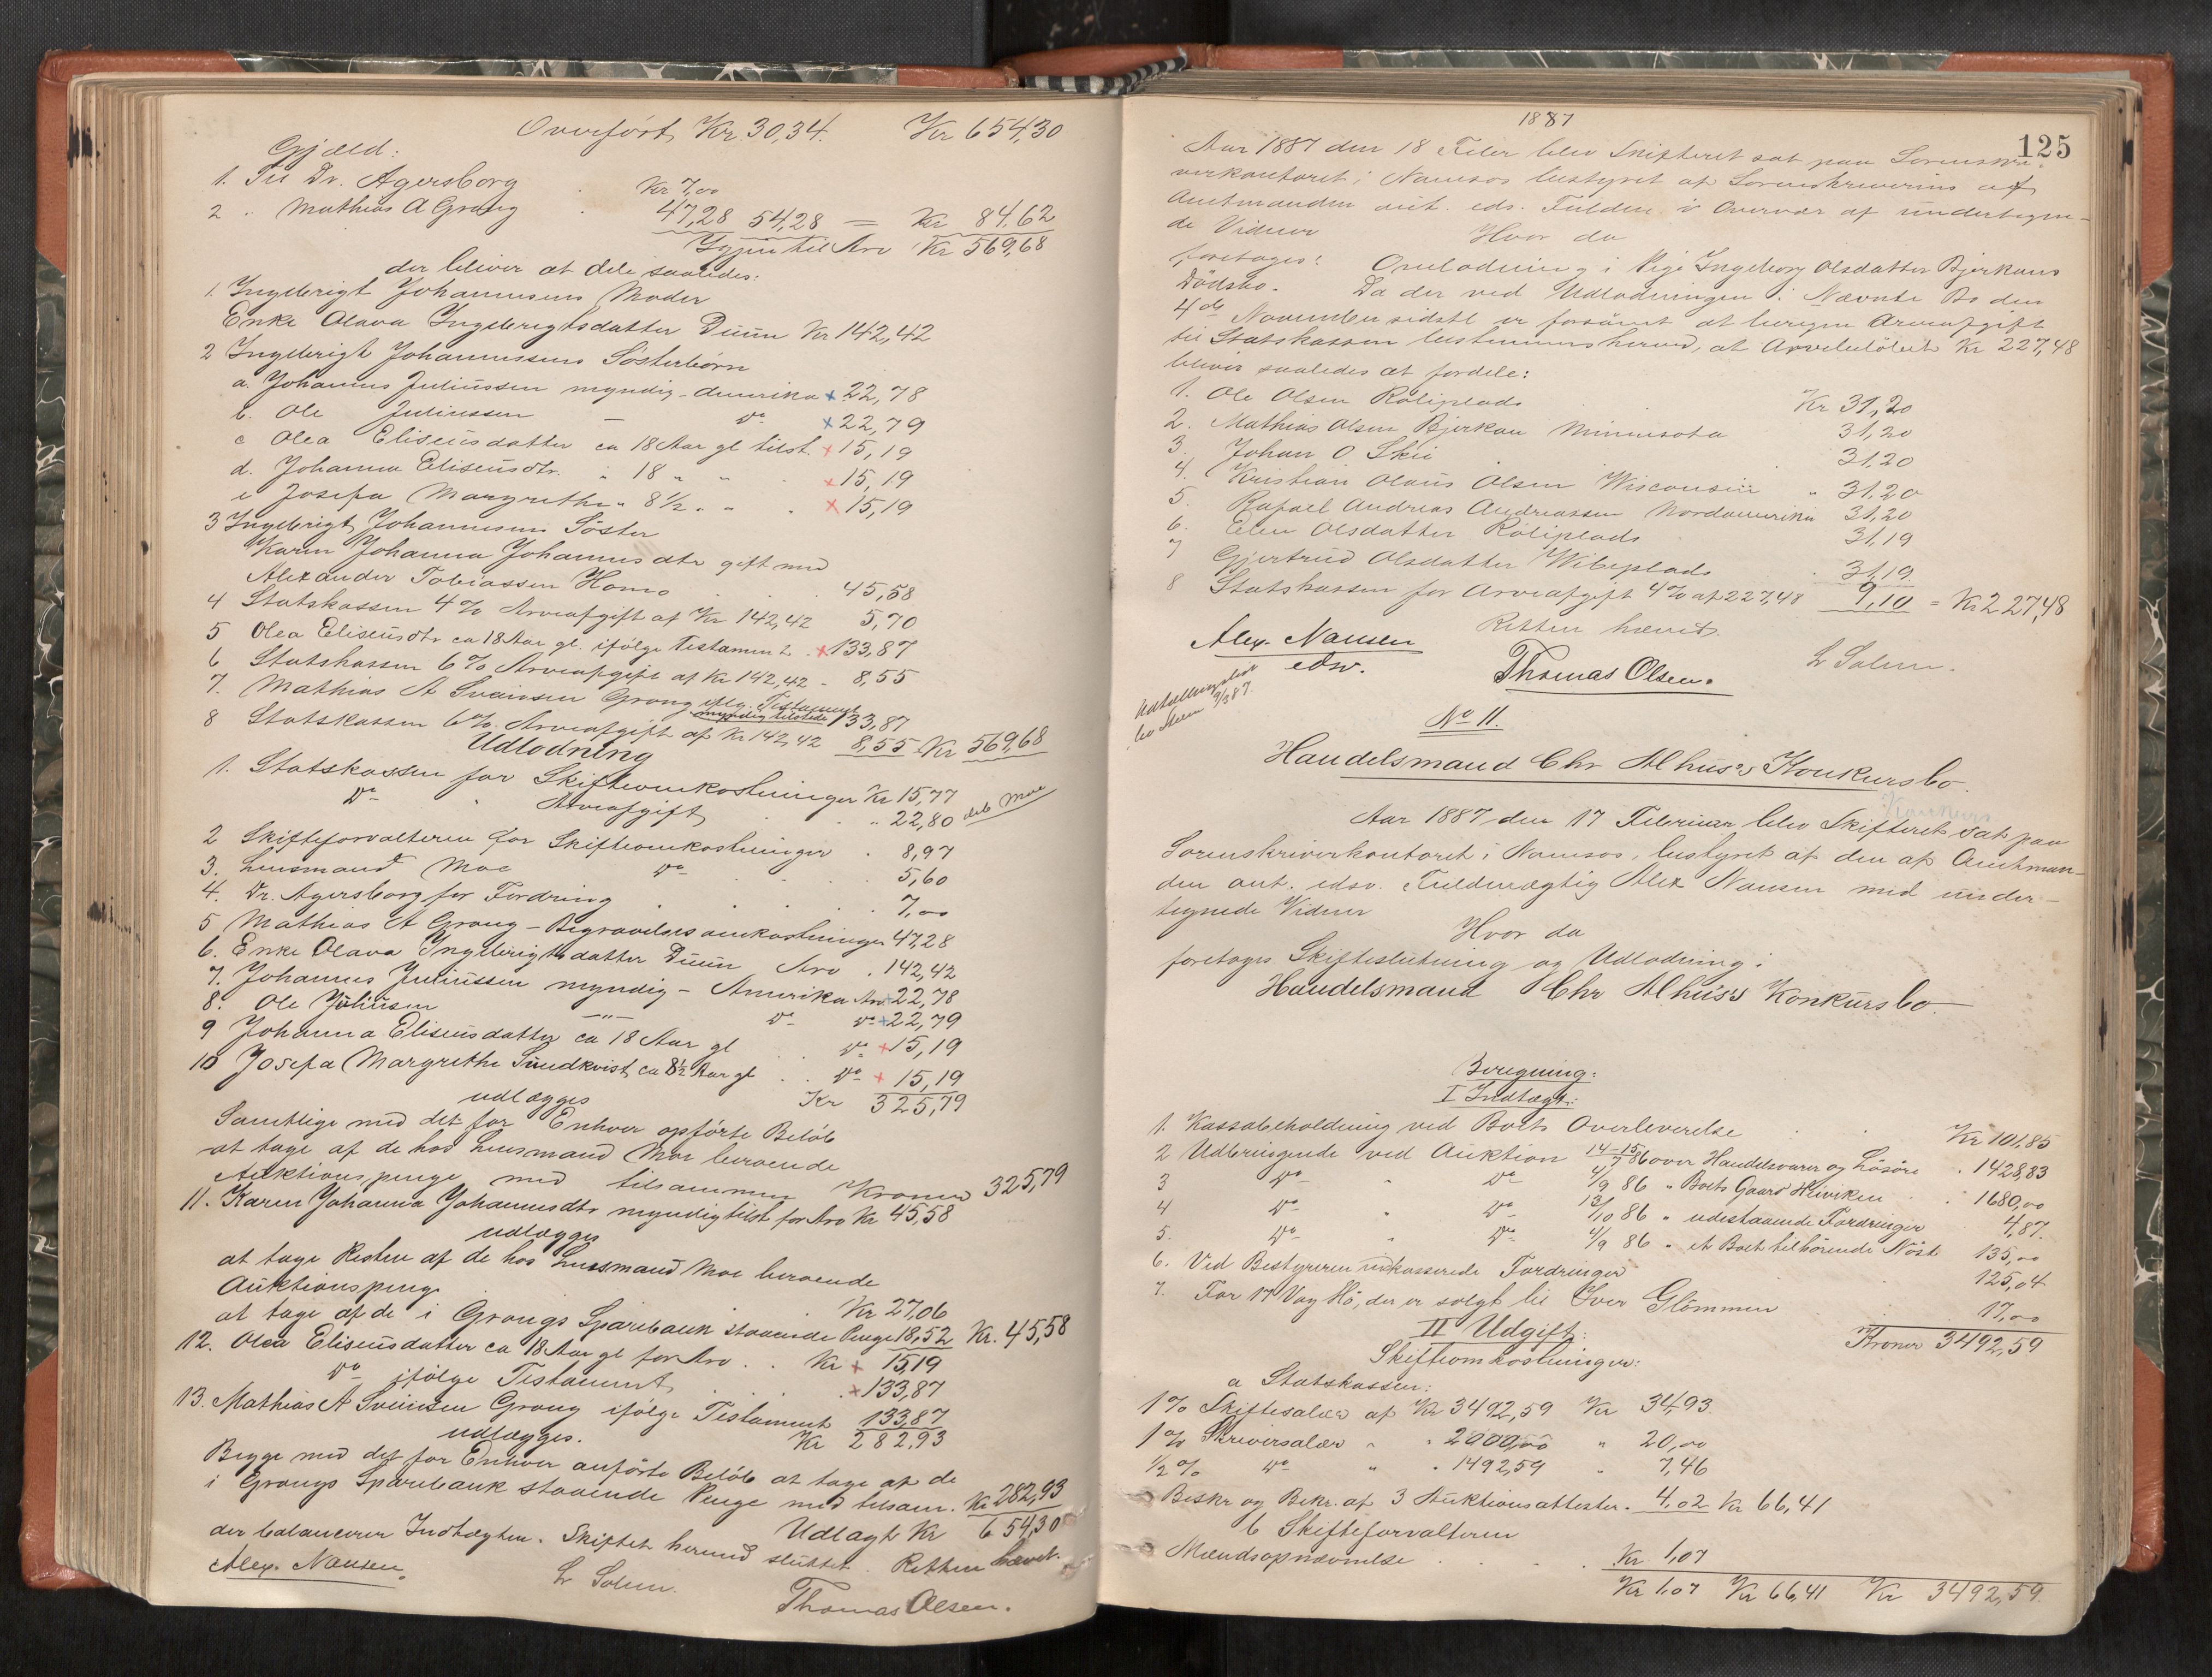 Overført Kr. 30,34. Kr 654,30
Gjæld:
1. Til Dr. Agersborg Kr 7,00
2 " Mathias A Grong 47,28 54,28 = Kr 84,62
Igjen til Arv Kr 569,68
der bliver at dele saaledes:
1. Ingebrigt Johannesens Moder
Enke Olava Ingebrigtsdatter Duun Kr 142,42
2 Ingebrigt Johannessens Søsterbørn
a. Johannes Juliussen myndig - Amerika + 22,78
b. Ole Juliussen — do + 22,79
c Olea Eliseusdatter ca 18 Aar gl tilst. + 15,19
d. Johanna Eliseusdtr. " 18 " " + 15,19
e Josefa Margrethe " 8 1/2 " " + 15,19
3 Ingebrigt Johannesens Søster
Karen Johanna Johannesdtr gift med
Alexander Tobiassen Homo 45,58
4 Statskassen 4 % Arveafgift af Kr 142,42 5,70
5 Olea Eliseusdtr ca 18 Aar gl. ifølge Testament + 133,87
6 Statskassen 6 % Arveafgift af Kr 142,42 - 8,55
7. Mathias A Sveinsen Grong iflg. Testament
myndig tilstede 133,87
8 Statskassen 6 %. Arveafgift af Kr 142,42 8,55 Kr 569,68
Udlodning
1. Statskassen for Skifteomkostninger Kr 15,77
do " Arveafgift " 22,80 deb Moe
2 Skifteforvalteren for Skifteomkostninger . 8,97
3. Lensmand Moe do 5,60
4. Dr. Agersborg for Fordring 7,00
5 Mathias A Grong - Begravelsesomkostninger 47,28
6. Enke Olava Ingebrigtsdatter Duun Arv . 142,42
7. Johannes Juliussen myndig - Amerika Arv + 22,78
8. Ole Juliusen —"— do do + 22,79
9 Johanna Eliseusdatter ca 18 Aar gl do + 15,19
10 Josefa Margrethe Sundkvist ca 8 1/2 Aar gl do + 15,19
udlægges Kr 325,79
Samtlige med det for Enhver opførte Beløb
at tage af de hos Lensmand Moe beroende
Auktionspenge med tilsammen Kroner 325,79
11. Karen Johanna Johannesdtr myndig tilst for Arv Kr 45,58
udlægges
at tage Resten af de hos Lensmand Moe beroende
Auktionspenge Kr 27,06
at tage af de i Grongs Sparebank staaende Penge 18,52 Kr. 45,58
12. Olea Eliseusdatter ca 18 Aar gl for Arv . . Kr + 15,19
do ifølge Testament . + 133,87
13. Mathias A Sveinsen Grong ifølge Testament 133,87
udlægges. Kr 282,93
Begge med det for Enhver anførte Beløb at tage af de
i Grongs Sparebank staaende Penge med tilsam. Kr 282,93
Udlagt Kr 654,30
der balancerer Indtægten. Skiftet herved sluttet. Retten hævet.
Alex. Nansen. L Solem. Thomas Olsen.
1887
125
Aar 1887 den 18 Feber blev Skifteret sat paa Sorenskri-
verkontoret i Namsos bestyret af Sorenskriverens af
Amtmanden aut. eds. Fuldm. i Overvær af undertegne-
de Vidner Hvor da
foretoges: Omlodning i Pige Ingeborg Olsdatter Bjørkaas
Dødsbo. Da der ved Udlodningen i Nævnte Bo den
4de November sidstl er forsømt at beregne Arveafgift
til Statskassen bestemmes herved, at Arvebeløbet Kr 227,48
bliver saaledes at fordele:
1. Ole Olsen Røliplads Kr 31,20
2. Mathias Olsen Bjørkaa Minnesota 31,20
3. Johan O Skei 31,20
4. Kristian Olaus Olsen Wisconsin " 31,20
5. Rafael Andreas Andreassen Nordamerika 31,20
6. Elen Olsdatter Røliplads 31,19
7 Gjertrud Olsdatter Wibeplads 31,19
8 Statskassen for Arveafgift 4 % af 227,48 9,10 = Kr 227,48
Retten hævet.
Alex. Nansen
edsv. Thomas Olsen. L Solem.
No 11.
Handelsmand Chr Alhus's Konkursbo.
Konkurs
Aar 1887 den 17 Februar blev Skifteret sat paa
Sorenskriverkontoret i Namsos, bestyret af den af Amtman-
den aut. edsv. Fuldmægtig Alex Nansen med under-
tegnede Vidner
Hvor da
foretoges Skifteslutning og Udlodning i
Handelsmand Chr Alhus's Konkursbo.
Beregning:
I Indtægt:
1. Kassabeholdning ved Boets Overleverelse Kr 101,85
2 Udbringende ved Auktion 14-15/7 86 over Handelsvarer og Løsøre . 1428,83
3 do " do 4/9 86 " Boets Gaard Heiviken " 1680,00
4 do " do 13/10 86 " udestaaende Fordringer 4,87.
5. do " do 4/9 86 " et Boet tilhørende Nøst 135,00
6. Ved Bestyreren inkasserede Fordringer 125,04
7. For 17 Vog Hø, der er solgt til Iver Glømmen 17,00
Kroner 3492,59
II Udgift:
Skifteomkostninger:
a Statskassen:
1 % Skiftesalær af Kr 3492,59 Kr 34,93.
1 % Skriversalær " " 2000,00 " 20,00
1/2 % do " " 1492,59 " 7,46
Beskr og Bekr. af 3 Auktionsattester. 4,02 Kr 66,41
b Skifteforvalteren
Mændsopnævnelse Kr 1,07
Kr 1,07 Kr 66,41 Kr 3492,59.